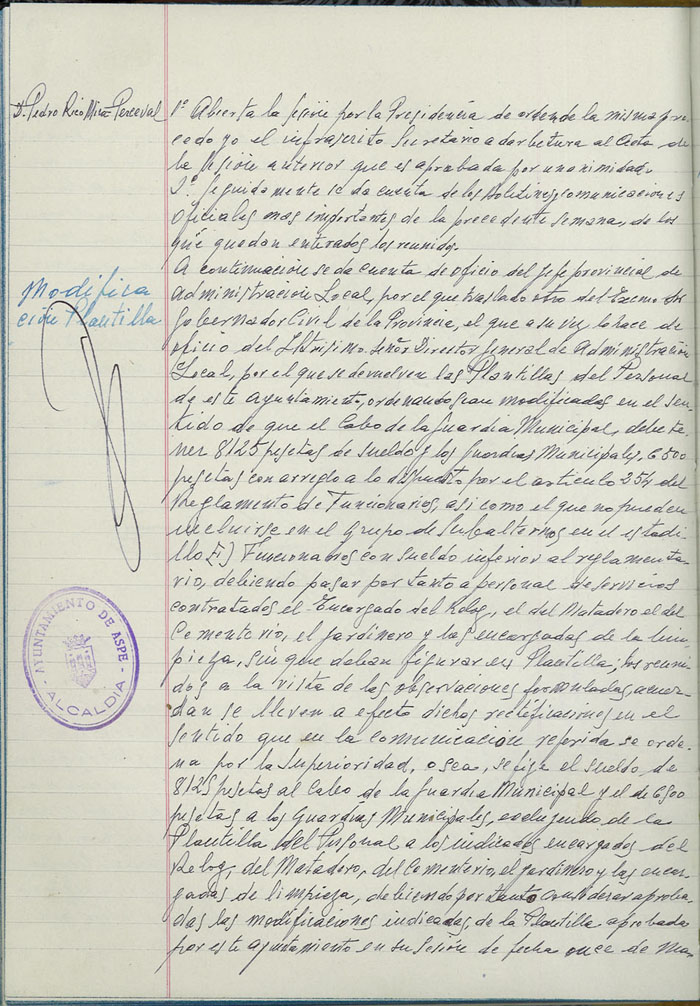 D. Pedro Rico Mira-Perceval
1º Abierta la sesión por la Presidencia de orden de la misma pro-
cedo yo el infrascrito Secretario a dar lectura al Acta de
la sesión anterior que es aprobada por unanimidad.
2º Seguidamente se da cuenta de los Boletines y comunicaciones
oficiales mas importantes de la precedente semana, de los
que quedan enterados los reunidos.
Modifica
ción Plantilla
A continuación se da cuenta de oficio del Jefe provincial de
Administración Local, por el que traslada otro del Excmo Sr
Gobernador Civil de la Provincia, el que a su vez lo hace de
oficio del Iltrisimo Señor Director General de Administración
Local, por el que se devuelven las Plantillas del Personal
de este Ayuntamiento, ordenando sean modificadas en el sen-
tido de que el Cabo de la Guardia Municipal, debe te-
ner 8125 pesetas de sueldo y los Guardias Municipales, 6500
pesetas con arreglo a lo dispuesto por el articulo 254 del
Reglamento de Funcionarios, asi como el que no pueden
incluirse en el Grupo de Subalternos en el estadi-
llo E) Funcionarios con sueldo inferior al reglamenta-
rio, debiendo pasar por tanto a personal de servicios
contratados el Encargado del Reloj, el del Matadero el del
Cementerio, el jardinero y las encargadas de la lim-
pieza, sin que deban figurar en Plantilla; los reuni-
dos a la vista de las observaciones formuladas, acuer-
dan se lleven a efecto dichas rectificaciones en el
sentido que en la comunicación referida se orde-
na por la Superioridad, o sea, se fije el sueldo de
8125 pesetas al Cabo de la Guardia Municipal y el de 6500
pesetas a los Guardias Municipales, excluyendo de la
Plantilla del Personal a los indicados encargados del
Reloj, del Matadero, del Cementerio, el jardinero y las encar-
gadas de limpieza, debiendo por tanto considerar aproba-
das las modificaciones indicadas, de la Plantilla aprobada
por este Ayuntamiento en su sesión de fecha once de Mar-
AYUNTAMIENTO DE ASPE
- ALCALDIA -